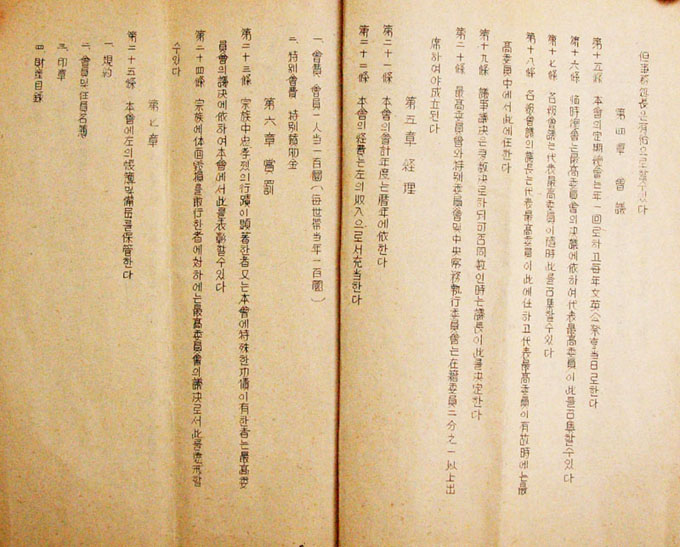 第四章 會議
第十五條 本會의定期總會는年一回로하고每年文英公祭享当日로한다
第十六條 临時總會는最高委員會의決議에依하여代表最高委員이此를召集할수있다
第十七條 各級會議는代表最高委員이隨時此를召集할수있다
第十八條 各級會議의議長은代表最高委員이此에任하고代表最高委員이有故時에는最
高委員中에서此에任한다
第十九條 議事議決은多数決로하되可否同数인時는議長이此를決定한다
第二十條 最高委員會와特別委員會및中央常務執行委員會는在籍委員二分之一以上出
席하여야成立된다
第五章 経理
第二十一條 本會의會計年度는曆年에依한다
第二十二條 本會의経費는左의收入으로서充当한다
一、會費 會員一人当一百圜(每世帯当年一百圜)
二、特別會費 特別補助金
第六章 賞罰
第二十三條 宗族中忠孝烈의行蹟이顕著한者又는本會에特殊한功績이有한者는最高委
員會의議決에依하여本會에서此를表彰할수있다
第二十四條 宗族에体面損傷을敢行한者에対하여는最高委員會의議決로서此를懲戒할
수있다
第七章
第二十五條 本會에左의帳簿및備品을保管한다
一 規約
二 會員및任員名簿
三 印章
四 財産目録